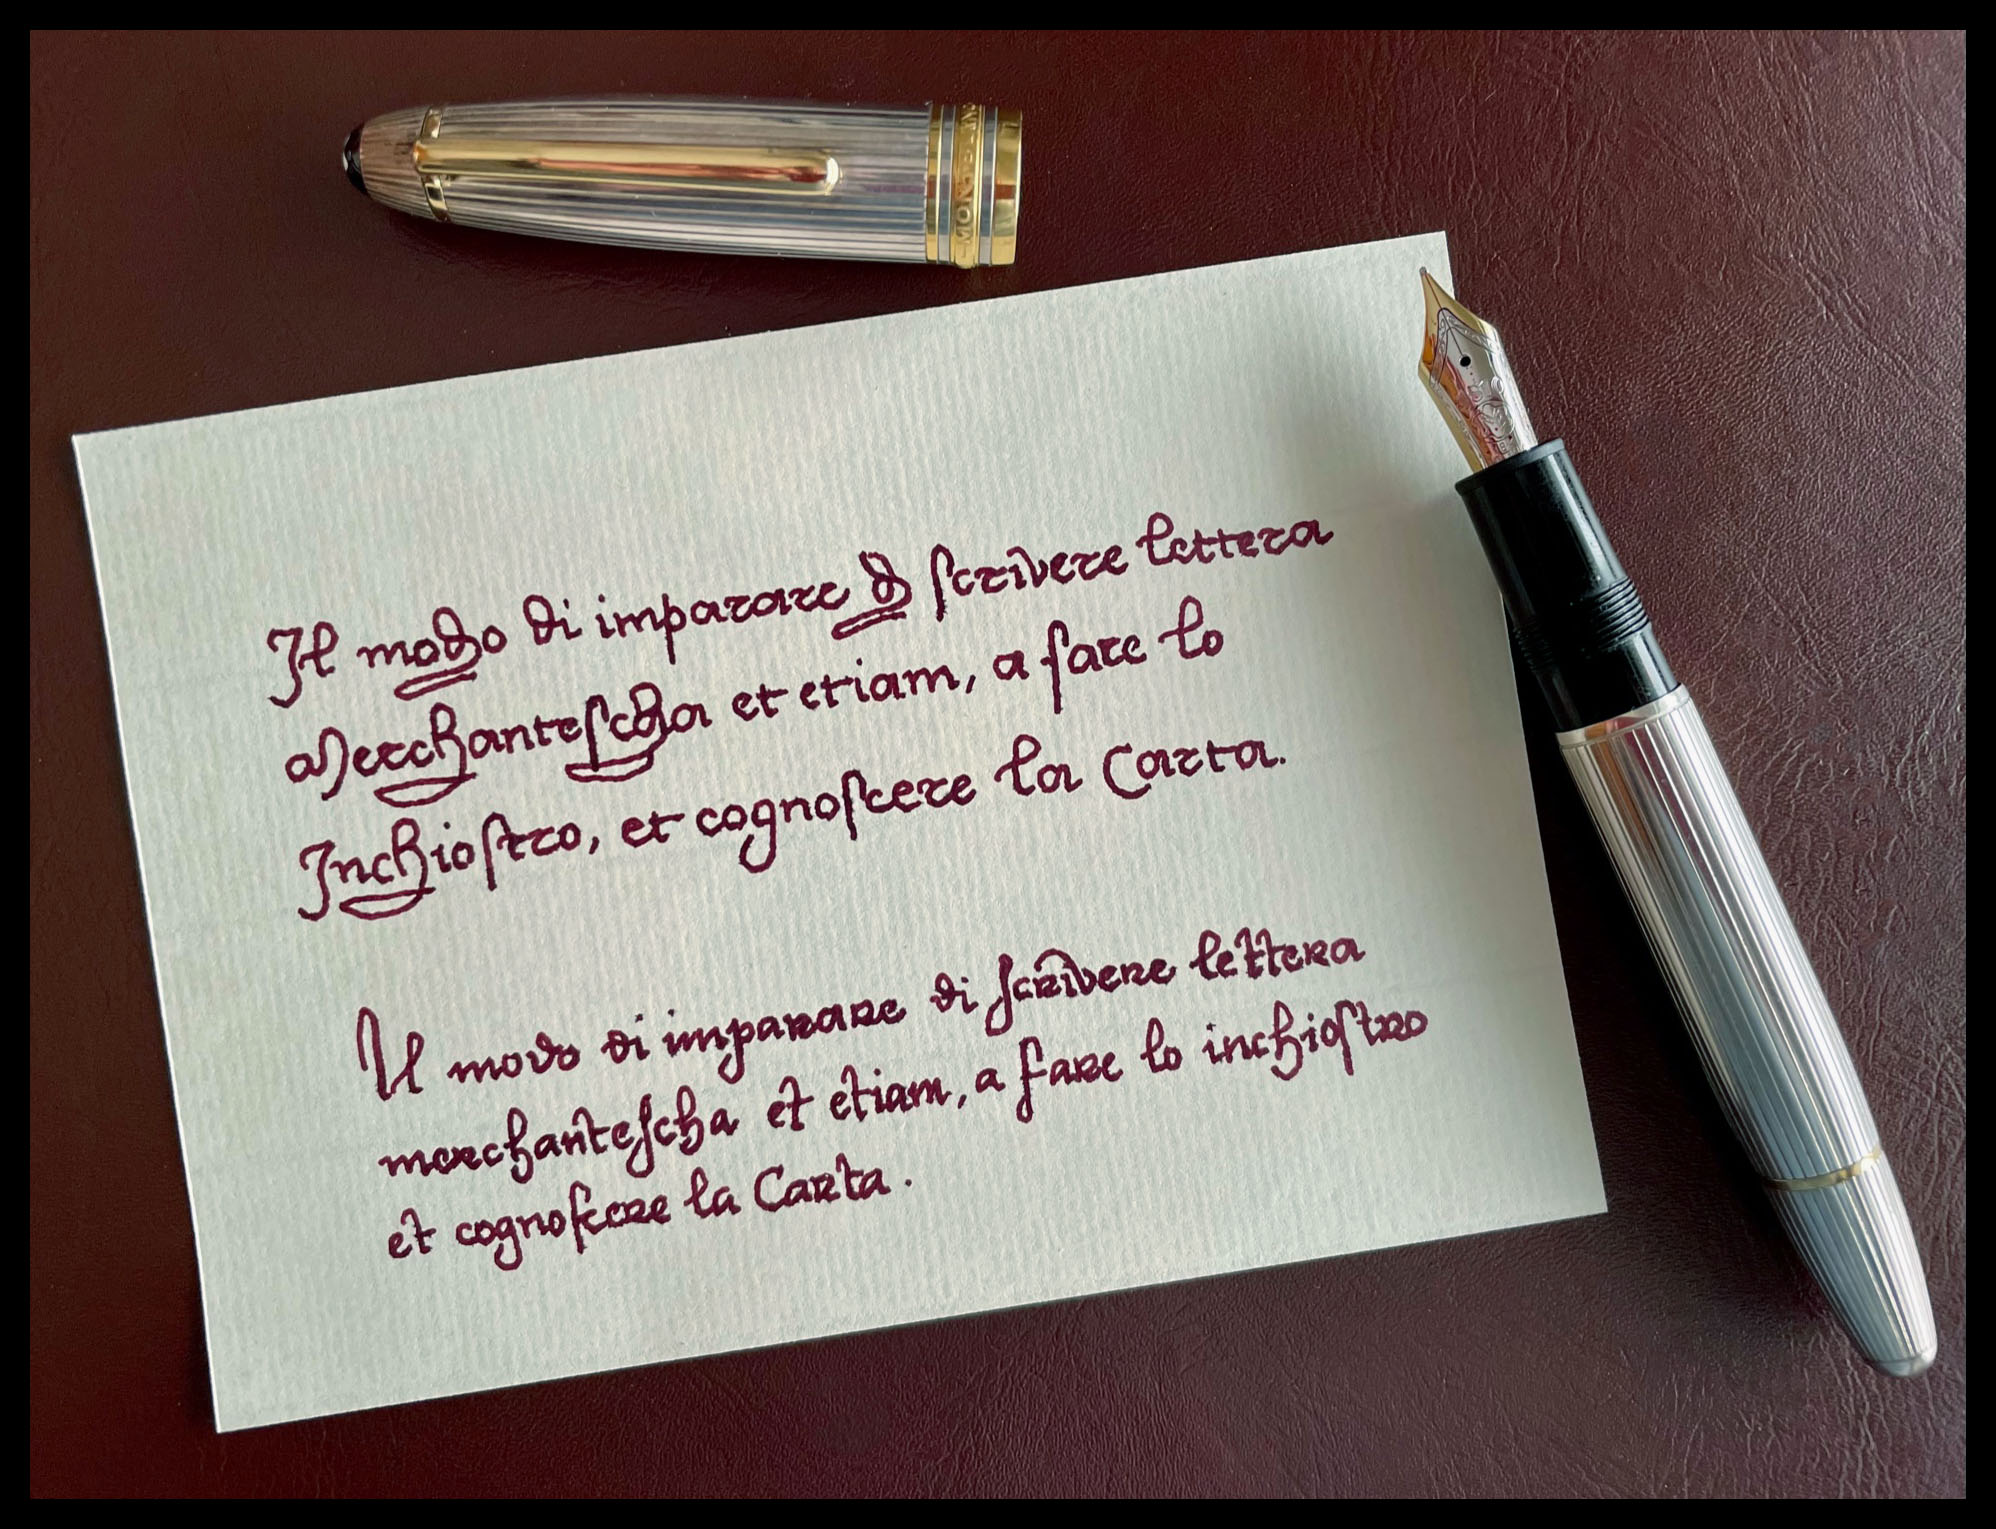 MONTBLANC
Il modo di imparare di ſcrivere lettera
Merchanteſcha et etiam, a fare lo
Inchioſtro, et cognoſcere la Carta.
Il modo di imparare di ſcrivere lettera
merchanteſcha et etiam, a fare lo inchioſtro
et cognoſcere la Carta.